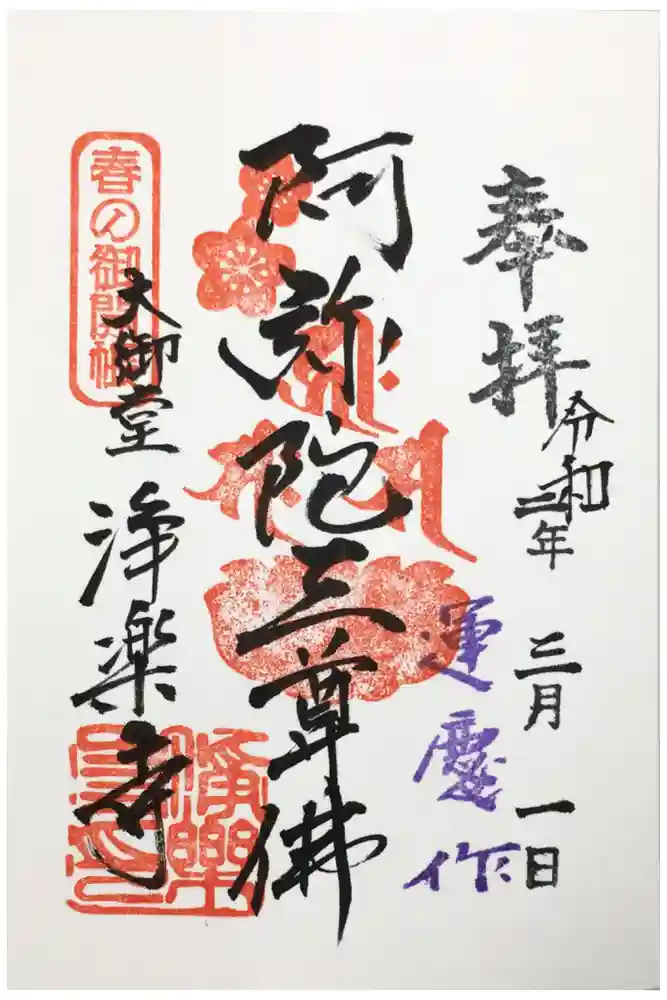 奉拝
令和三年 三月 一日
運慶作
阿弥陀三尊佛
春の御開帳
大御堂 浄楽寺
淨樂
寺印